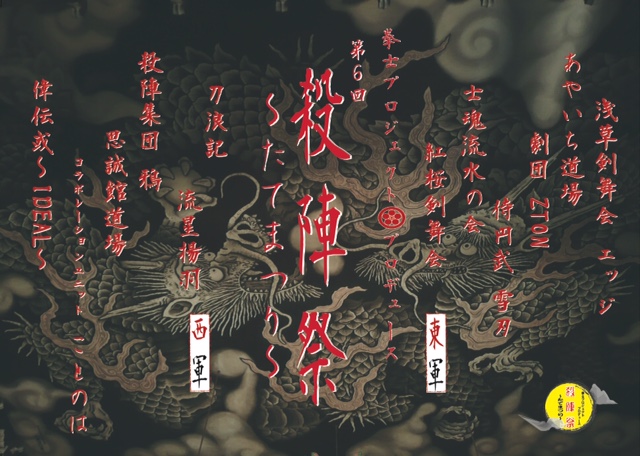 浅草剣舞会 エッジ
あやいち道場
劇団 ZTON
侍円武 雪刃
士魂流水の会
紅桜剣舞会
東軍
拳士プロジェクト プロデュース
第6回
殺陣祭
～たてまつり～
刀浪記
流星揚羽
西軍
殺陣集団 鴉
思誠館道場
コラボレーションユニット ことのは
偉伝或～IDEAL～
殺陣祭